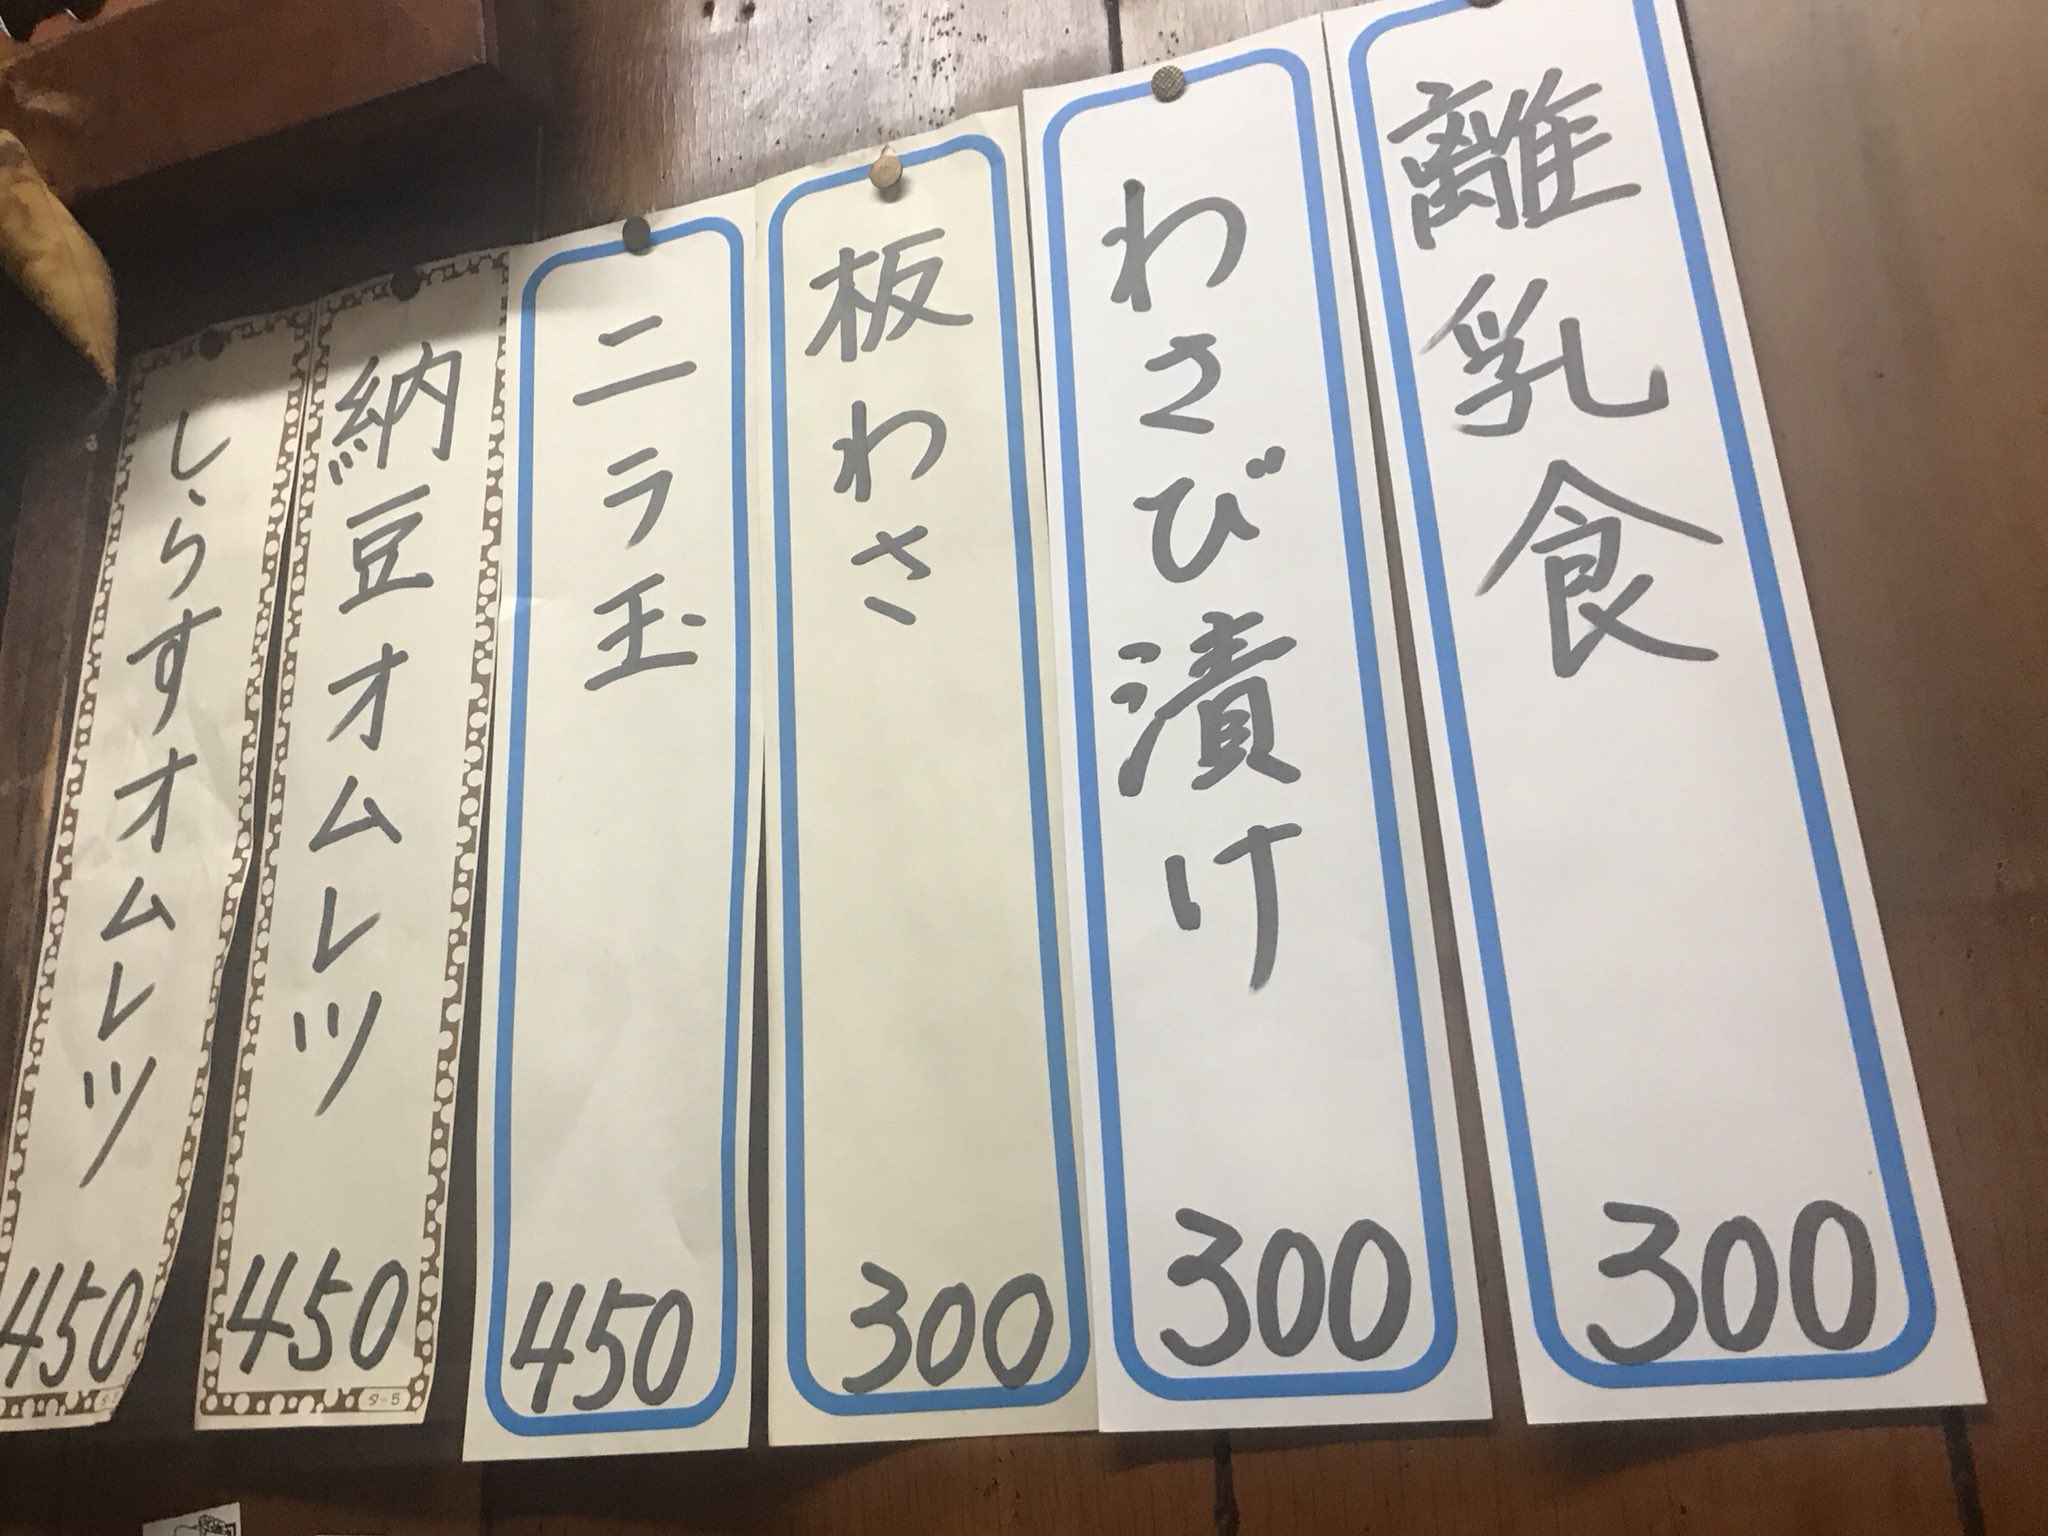 離乳食
300
わさび漬け
300
板わさ
300
ニラ玉
450
納豆オムレツ
450
タ-5
しらすオムレツ
450